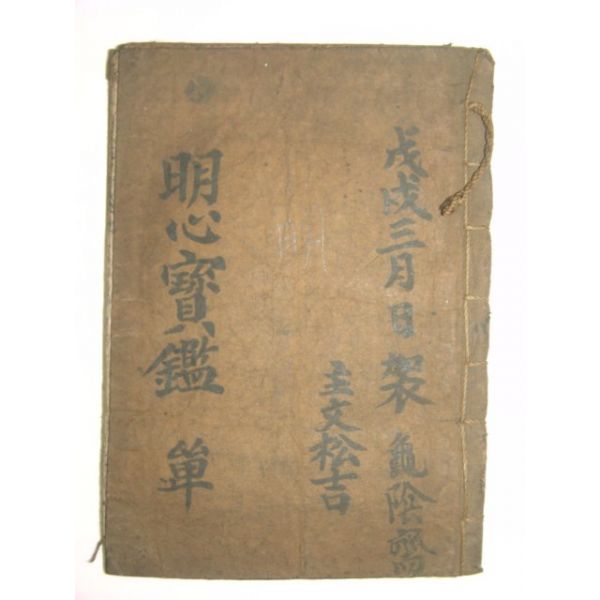 戊戌三月日 製 龜陰齋
主文松吉
明心寶鑑 單